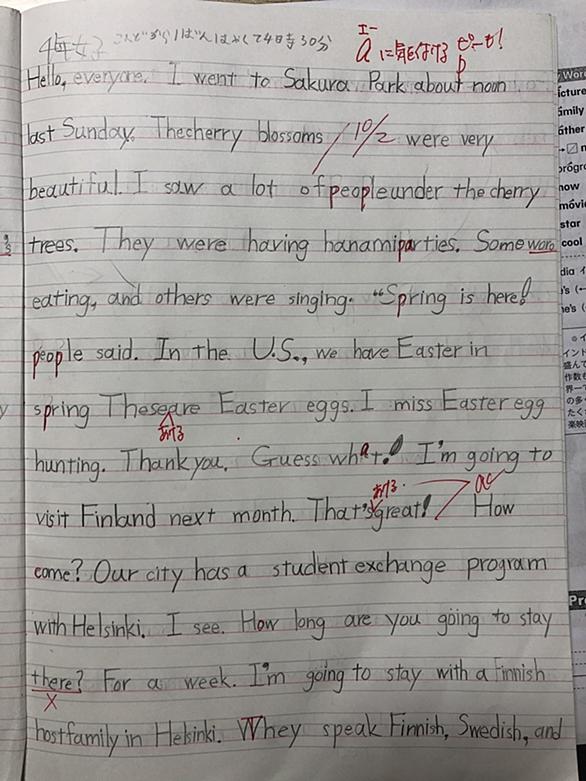 4年女子 こんどから1ばんはやくて4日寺30分
エー
aに気をつける ピーも!
p
Hello, everyone. I went to Sakura Park about noon
last Sunday. Thecherry blossoms 10/2 were very
beautiful. I saw a lot of peopleunder the cherry
trees. They were having hanamiparties. Some ware
eating, and others were singing. "Spring is here!
people said. In the U.S., we have Easter in
spring Theseare Easter eggs. I miss Easter egg
あける
hunting. Thank you. Guess what! I'm going to
あける
visit Finland next month. That's great! How
come? Our city has a student exchange program
with Helsinki. I see. How long are you going to stay
there? For a week. I'm going to stay with a Finnish
hostfamily in Helsinki. Whey speak Finnish, Swedish, and
Word
icture
amily
ather
progra
now
movie
star
cool